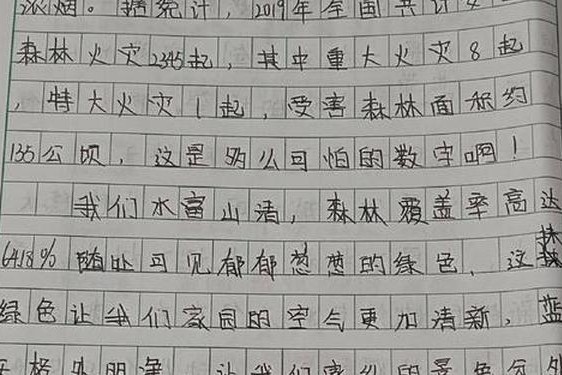 浓烟。据统计，2019年全国共计
森林火灾2345起，其中重大火灾8起
，特大火灾1起，受害森林面积约
135公顷，这是多么可怕的数字啊！
我们水富山清，森林覆盖率高达
64.18%随处可见郁郁葱葱的绿色，这抹
绿色让我们家园的空气更加清新，蓝
天格外明净，让我们家乡的景色分外